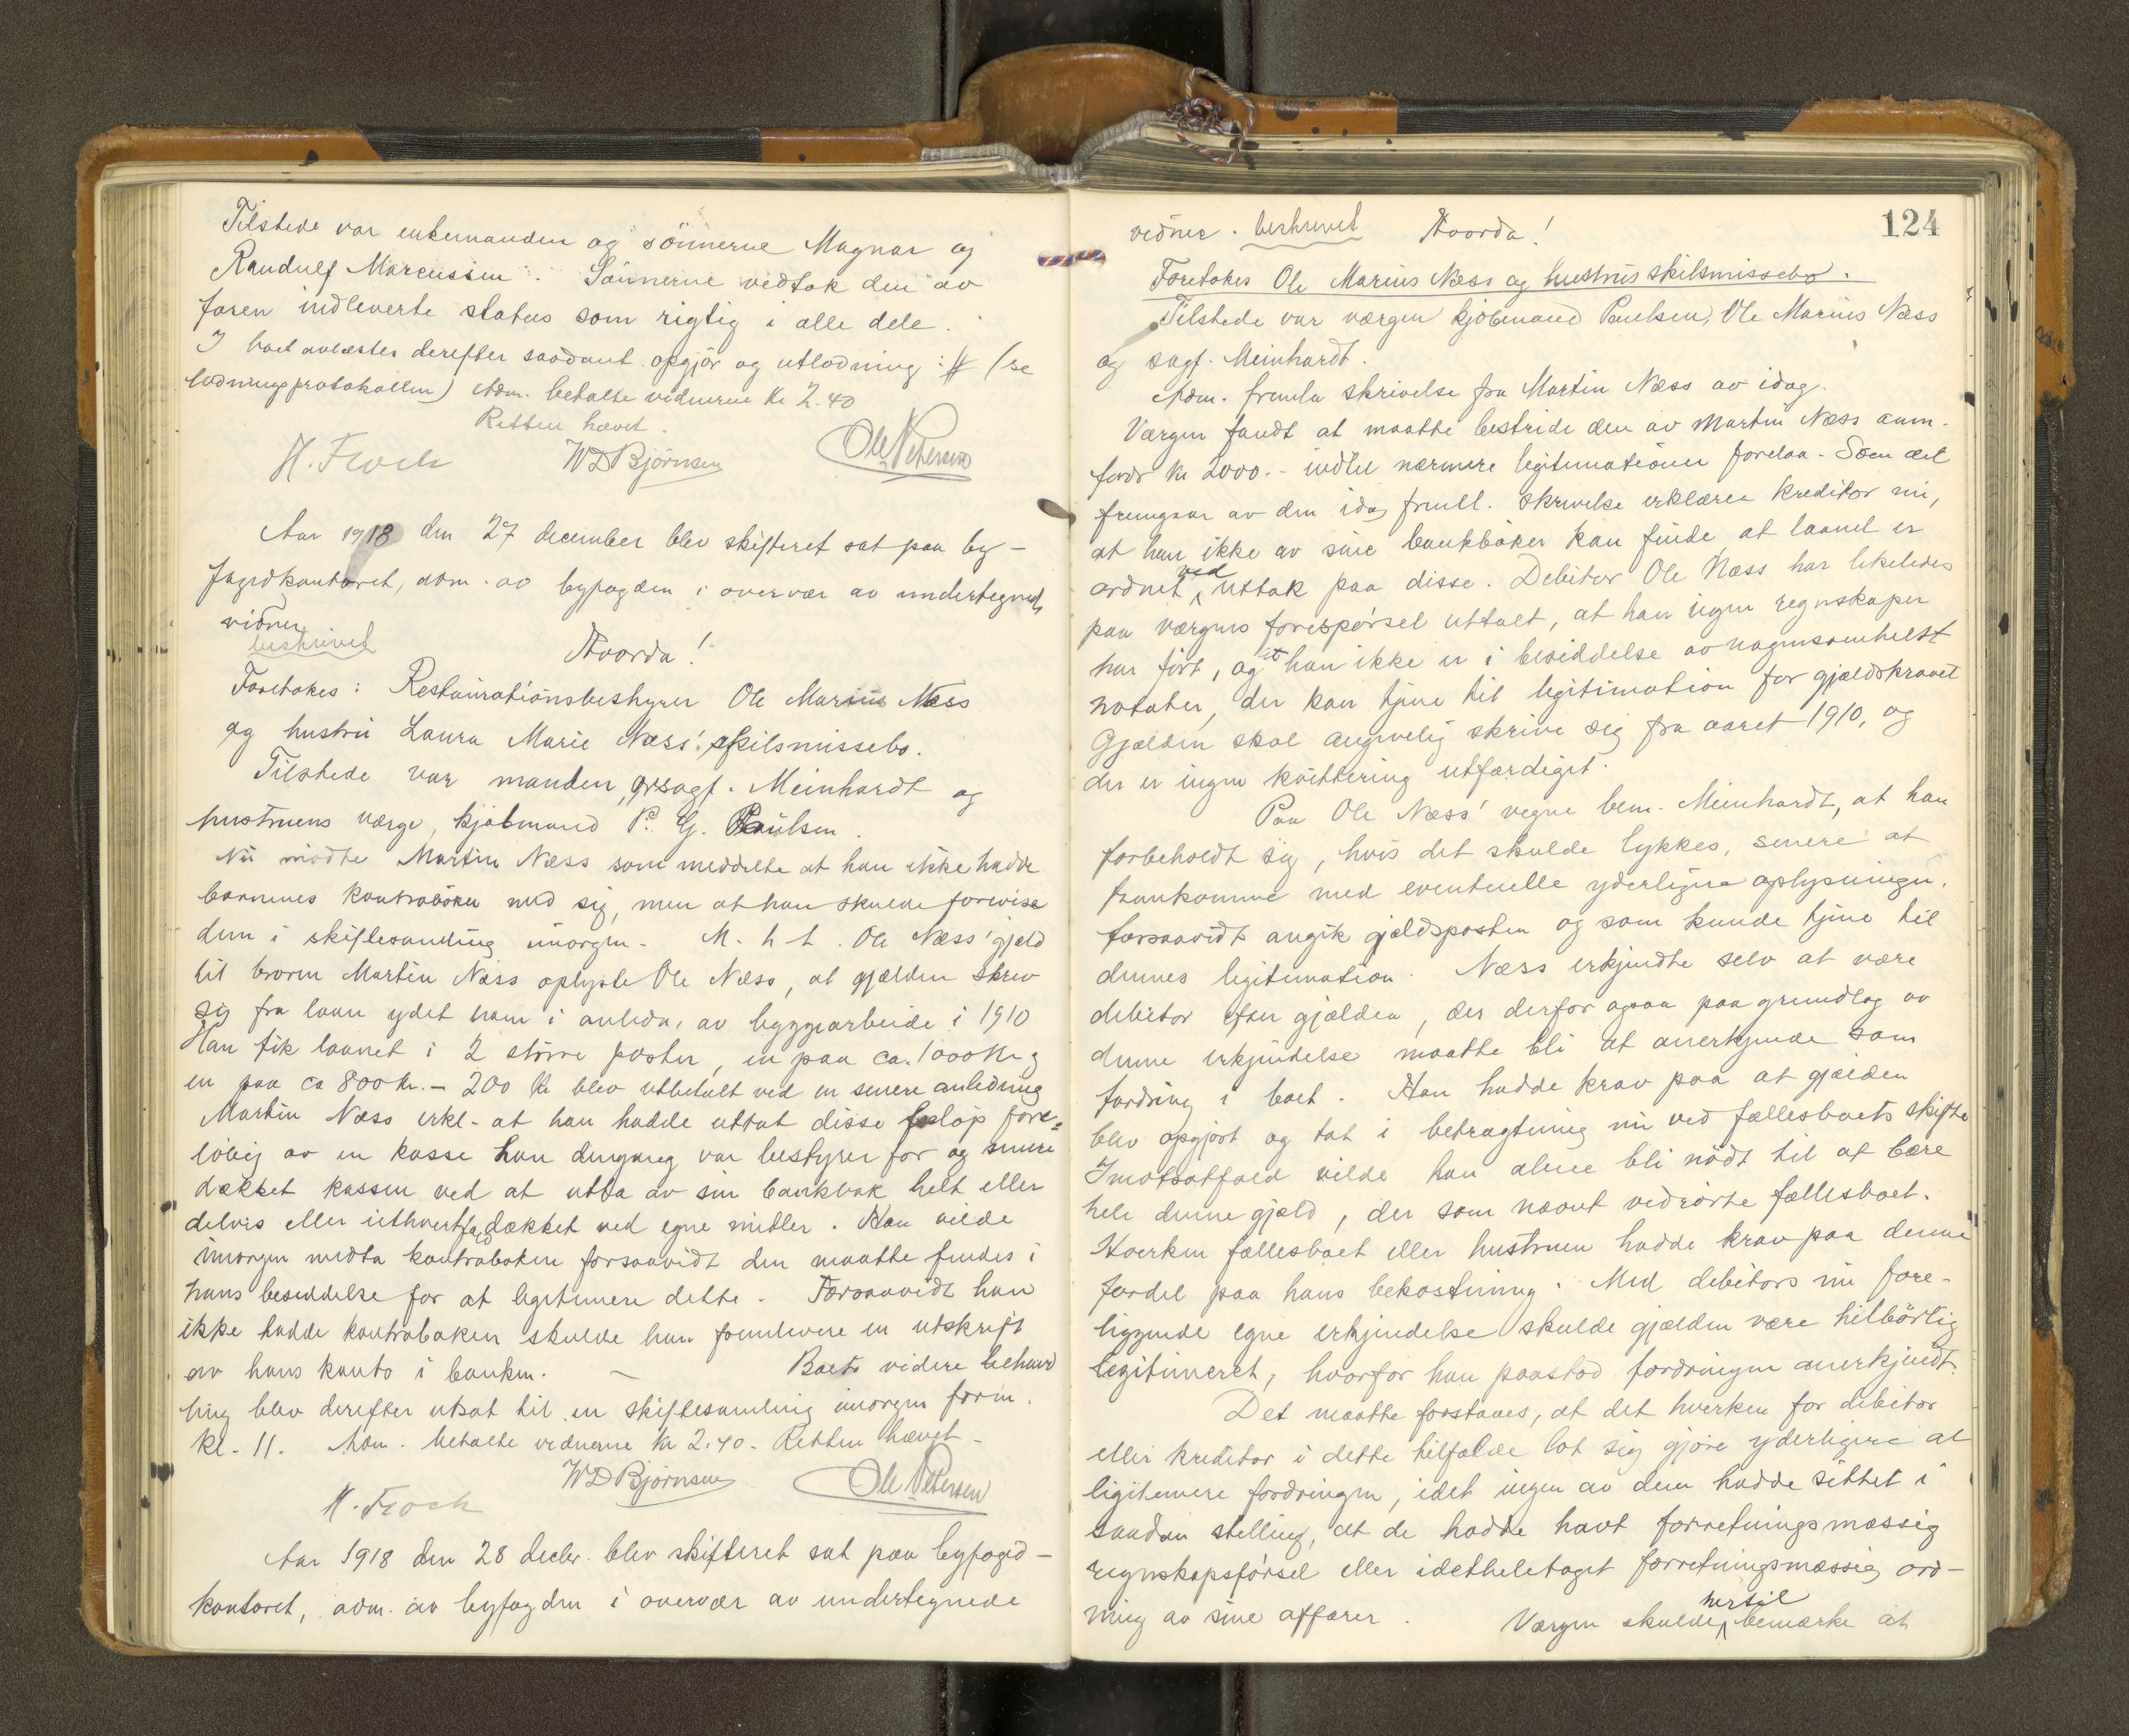 Tilstede var enkemanden og sönnerne Magnar og
Randulf Marcussen. Sönnerne vedtok den av
faren indleverte status som rigtig i alle dele.
I boet avlæstes derefter saadant opgjör og utlodning: # (se
lodningsprotokollen) Adm. betalte vidnerne kr 2.40
Retten hævet.
H. Floch WD Björnsen Ole Petersen
Aar 1918 den 27 december blev skifteret sat paa by-
fogedkontoret, adm. av byfogden i overvær av undertegnede
vidner.
beskrevet Hvorda!
Foretokes: Restaurationsbestyrer Ole Marius Næss
og hustru Laura Marie Næss' skilsmissebo.
Tilstede var manden, orsagf. Meinhardt og
hustruens værge, kjöbmand P. G. Paulsen.
Nu mödte Martin Næss som meddelte at han ikke hadde
bankenes kontraböker med sig, men at han skulde forevise
dem i skiftesamling imorgen. M. h. t. Ole Næss' gjæld
til broren Martin Næss oplyste Ole Næss, at gjælden skrev
sig fra laan ydet ham i anledn. av byggearbeide i 1910
Han fik laanet i 2 större poster, en paa ca. 1000 kr og
en paa ca 800 kr. - 200 kr blev utbetalt ved en senere anledning
Martin Næss erkl. at han hadde uttat disse belöp fore-
löbig av en kasse han dengang var bestyrer for og senere
dækket kassen ved at utta av sin bankbok helt eller
delvis eller iethvertfald dækket ved egne midler. Han vilde
imorgen medta kontraboken forsaavidt den maatte findes i
hans besiddelse for at legitimere dette. Forsaavidt han
ikke hadde kontraboken skulde han fremlevere en utskrift
av hans konto i banken. - Boets videre behand
ling blev derefter utsat til en skiftesamling imorgen form.
kl. 11. Adm. betalte vidnerne kr 2.40. Retten hævet.
H. Floch WD Björnsen Ole Petersen
Aar 1918 den 28 decbr. blev skifteret sat paa byfoged-
kontoret, adm. av byfogden i overvær av undertegnede
124
vidner. beskrevet Hvorda!
Foretokes Ole Marius Næss og hustrus skilsmissebo.
Tilstede var værgen kjöbmand Paulsen, Ole Marius Næss
og sagf. Meinhardt.
Adm. fremla skrivelse fra Martin Næss av idag.
Værgen fandt at maatte bestride den av Martin Næss anm.
fordr kr 2000.- indtil nærmere legitimationer forelaa. Som det
fremgaar av den idag freml. skrivelse erklærer kreditor nu,
at han ikke av sine bankböker kan finde at laanet er
ordnet ved uttak paa disse. Debitor Ole Næss har likeledes
paa værgens forespörsel uttalt, at han ingen regnskaper
har fört, og at han ikke er i besiddelse av nogensomhelst
notater, der kan tjene til legitimation for gjældskravet
Gjælden skal angivelig skrive sig fra aaret 1910, og
der er ingen kvittering utfærdiget.
Paa Ole Næss' vegne bem. Meinhardt, at han
forbeholdt sig, hvis det skulde lykkes, senere at
fremkomme med eventuelle yderligere oplysninger.
forsaavidt angik gjældsposten og som kunde tjene til
dennes legitimation. Næss erkjendte selv at være
debitor efter gjælden, der derfor ogsaa paa grundlag av
denne erkjendelse maatte bli at anerkjende som
fordring i boet. Han hadde krav paa at gjælden
blev opgjort og tat i betragtning nu ved fællesboets skifte
Imotsatfald vilde han alene bli nödt til at bære
hele denne gjæld, der som nævnt vedrörte fællesboet.
Hverken fællesboet eller hustruen hadde krav paa denne
fordel paa hans bekostning. Med debitors nu fore-
liggende egne erkjendelse skulde gjælden være tilbörlig
legitimeret, hvorfor han paastod fordringen anerkjendt.
Det maatte forstaaes, at det hverken for debitor
eller kreditor i dette tilfælde lot sig gjöre yderligere at
legitimere fordringen, idet ingen av dem hadde sittet i
saadan stilling, at de hadde havt forretningsmæssig
regnskapsförsel eller idetheletaget forretningsmæssig ord-
ning av sine affærer. Værgen skulde hertil bemærke at